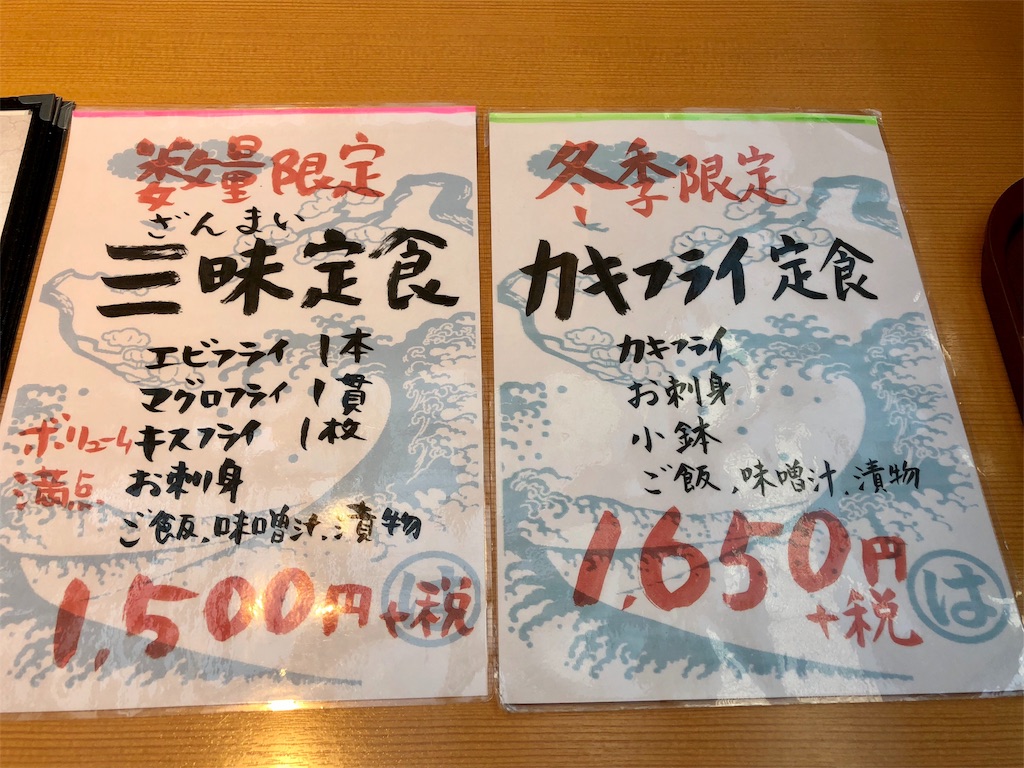 数量限定
ざんまい
三昧定食
エビフライ 1本
マグロフライ 1貫
キスフライ 1枚
ボリューム
満点
お刺身
ご飯、味噌汁、漬物
1,500円+税
は
冬季限定
カキフライ定食
カキフライ
お刺身
小鉢
ご飯、味噌汁、漬物
1,650円
+税
は